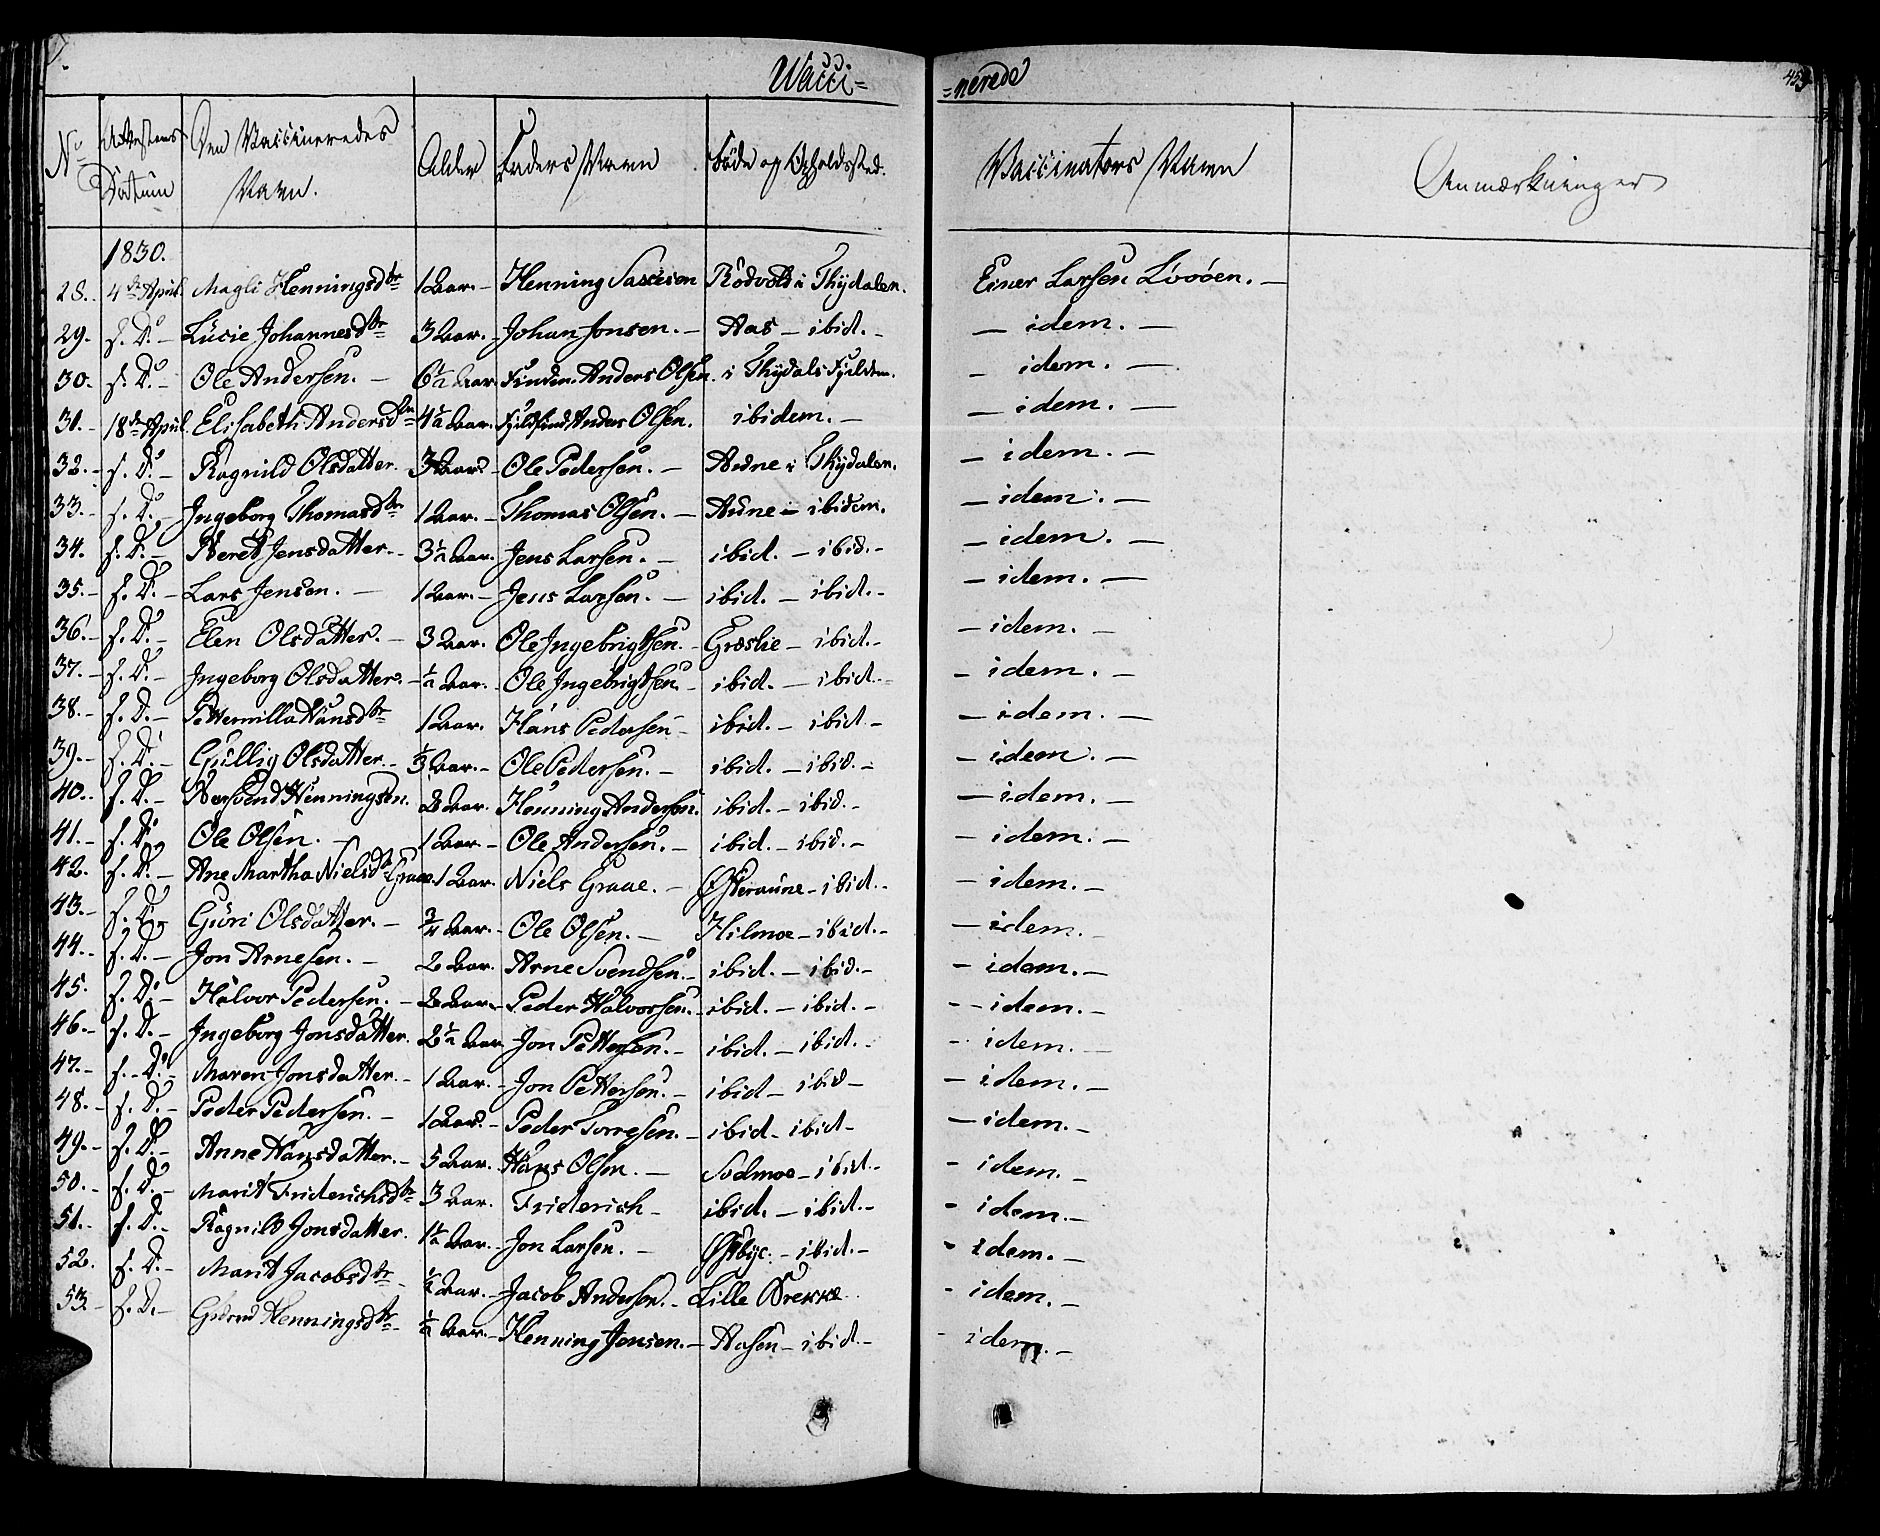 Wacci=
=nerede
No Attestens Datum Den Vaccineredes Navn. Alder Faders Navn Föde og Opholdssted. Vaccinators Navn Anmærkninger
1830.
28. 4de April. Magli Henningsdtr 1 Aar. - Henning Rödvold i Thydalen. Einer Larsen Lövöen. -
29. s. D. - Lücie Johannesdtr 3 Aar. - Johan Jonsen. - Aas - ibid. - - idem. -
30. s. D. - Ole Andersen. - 6½ Aar. Finden Anders Olsen. i Thydals Fjeldem. - idem. -
31. 18de April. Elisabeth Andersdtr 4½ Aar. Fjeldfind Anders Olsen. ibidem. - - idem. -
32. - s. D. - Ragnild Olsdatter. 3 Aar. - Ole Pedersen. - Aune i Thydalen. - idem. -
33. - s. D. - Ingeborg Thomasdtr 1 Aar. - Thomas Olsen. - Aune - ibidem. - idem. -
34. s. D. - Beret Jensdatter. - 3½ Aar. Jens Larsen. - ibid. - ibid. - - idem. -
35. - s. D. - Lars Jensen. - 1 Aar. - Jens Larsen. - ibid. - ibid. - - idem. -
36. - s. D. - Elen Olsdatter. - 3 Aar. Ole Ingebrigtsen. - Græslie - ibid. - - idem. -
37. - s. D. - Ingeborg Olsdatter. - ½ Aar. - Ole Ingebrigtsen. - ibid. - ibid. - - idem. -
38. - s. D. - Petternilla Hansdtr 1 Aar. Hans Pedersen - ibid. - ibid. - - idem. -
39. - s. D. - Gullig Olsdatter. - ⅓ Aar. - Ole Pedersen. - ibid. - ibid. - - idem. -
40. - s. D. - Bersvend Henningsen. 2 Aar. Henning Andersen. ibid. - ibid. - - idem. -
41. - s. D. Ole Olsen. - 1 Aar. - Ole Andersen. - ibid. - ibid. - - idem. -
42. s. D. - Ane Martha Nielsdtr Graae. 1 Aar. Niels Graae. - Østeraune - ibid. - - idem. -
43. - s. D. - Guri Olsdatter. - ¾ Aar. - Ole Olsen. - Hilmoe - ibid. - - idem. -
44. - s. D. - Jon Arnesen. - 2 Aar. Arne Svendsen. - ibid. - ibid. - - idem. -
45. s. D. - Halvor Pedersen. - 2 Aar. - Peder Halvorsen. - ibid. - ibid. - - idem. -
46. - s. D. - Ingeborg Jonsdatter. 2½ Aar Jon Pettersen. - ibid. - ibid. - - idem. -
47. - s. D. - Maren Jonsdatter. - 1 Aar. - Jon Pettersen. - ibid - ibid - - idem. -
48. - s. D. - Peder Pedersen. - 1 Aar. - Peder Torresen. - ibid - ibid - - idem. -
49. - s. D. Anne Hansdatter. - 5 Aar. Hans Olsen. - Sodmoe - ibid. - - idem. -
50. - s. D. - Marit Friderichsdtr 3 Aar. Friderich - ibid. - ibid. - - idem. -
51. - s. D. - Ragnild Jonsdatter. 1½ Aar. - Jon Larsen. - Østbye. - ibid. - - idem. -
52. s. D. - Marit Jacobsdtr - ½ Aar. - Jacob Andersen. - Lille Brekke. - idem. -
53. - s. D. - Henningsdtr - ½ Aar. - Henning Jensen. - Aasen - ibid. - - idem. -